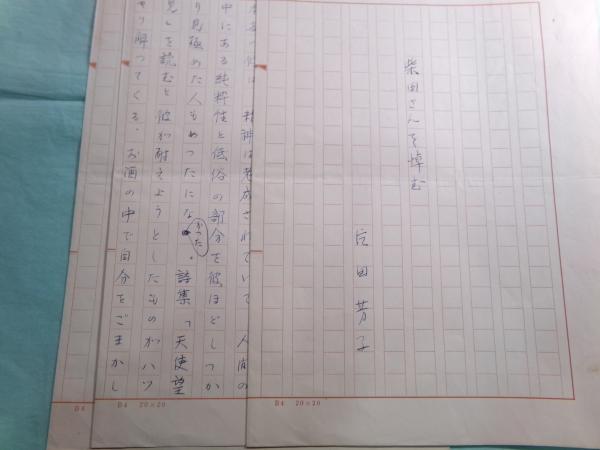 柴田さんを悼む
田芳子
精神は老成されていて 人間の
中にある純粋性と低俗の部分を彼ほどしっか
り見極めた人もめったになかった。詩集「天使望
見」を読むと彼が耐えようとしたものがハッ
り解ってくる。お酒の中で自分をごまかし
B4 20×20
B4 20×20
B4